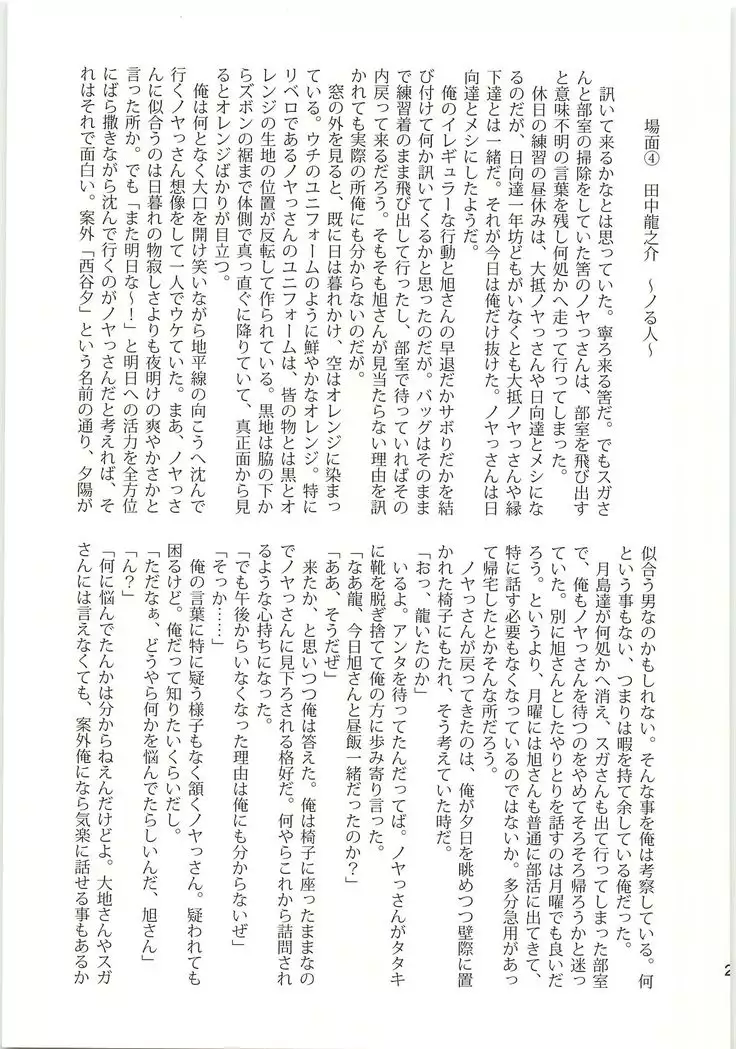 場面④　田中龍之介　～ノる人～
訊いて来るかなとは思っていた。寧ろ来る筈だ。でもスガさ
んと部室の掃除をしていた筈のノヤっさんは、部室を飛び出す
と意味不明の言葉を残し何処かへ走って行ってしまった。
休日の練習の昼休みは、大抵ノヤっさんや日向達とメシにな
るのだが、日向達一年坊どもがいなくとも大抵ノヤっさんや縁
下達とは一緒だ。それが今日は俺だけ抜けた。ノヤっさんは日
向達とメシにしたようだ。
俺のイレギュラーな行動と旭さんの早退だかサボりだかを結
び付けて何か訊いてくるかと思ったのだが。バッグはそのまま
で練習着のまま飛び出して行ったし、部室で待っていればその
内戻って来るだろう。そもそも旭さんが見当たらない理由を訊
かれても実際の所俺にも分からないのだが。
窓の外を見ると、既に日は暮れかけ、空はオレンジに染まっ
ている。ウチのユニフォームのように鮮やかなオレンジ。特に
リベロであるノヤっさんのユニフォームは、皆の物とは黒とオ
レンジの生地の位置が反転して作られている。黒地は脇の下か
らズボンの裾まで体側で真っ直ぐに降りていて、真正面から見
るとオレンジばかりが目立つ。
俺は何となく大口を開け笑いながら地平線の向こうへ沈んで
行くノヤっさん想像をして一人でウケていた。まあ、ノヤっさ
んに似合うのは日暮れの物寂しさよりも夜明けの爽やかさかと
言った所か。でも「また明日な～！」と明日への活力を全方位
にばら撒きながら沈んで行くのがノヤっさんだと考えれば、そ
れはそれで面白い。案外「西谷夕」という名前の通り、夕陽が
似合う男なのかもしれない。そんな事を俺は考察している。何
という事もない、つまりは暇を持て余している俺だった。
月島達が何処かへ消え、スガさんも出て行ってしまった部室
で、俺もノヤっさんを待つのをやめてそろそろ帰ろうかと迷っ
ていた。別に旭さんとしたやりとりを話すのは月曜でも良いだ
ろう。というより、月曜には旭さんも普通に部活に出てきて、
特に話す必要もなくなっているのではないか。多分急用があっ
て帰宅したとかそんな所だろう。
ノヤっさんが戻ってきたのは、俺が夕日を眺めつつ壁際に置
かれた椅子にもたれ、そう考えていた時だ。
「おっ、龍いたのか」
いるよ。アンタを待ってたんだってば。ノヤっさんがタタキ
に靴を脱ぎ捨てて俺の方に歩み寄り言った。
「なあ龍、今日旭さんと昼飯一緒だったのか？」
「ああ、そうだぜ」
来たか、と思いつつ俺は答えた。俺は椅子に座ったままなの
でノヤっさんに見下ろされる格好だ。何やらこれから詰問され
るような心持ちになった。
「でも午後からいなくなった理由は俺にも分からないぜ」
「そっか……」
俺の言葉に特に疑う様子もなく頷くノヤっさん。疑われても
困るけど。俺だって知りたいくらいだし。
「ただなぁ、どうやら何かを悩んでたらしいんだ、旭さん」
「ん？」
「何に悩んでたんかは分からねえんだけどよ。大地さんやスガ
さんには言えなくても、案外俺になら気楽に話せる事もあるか
2